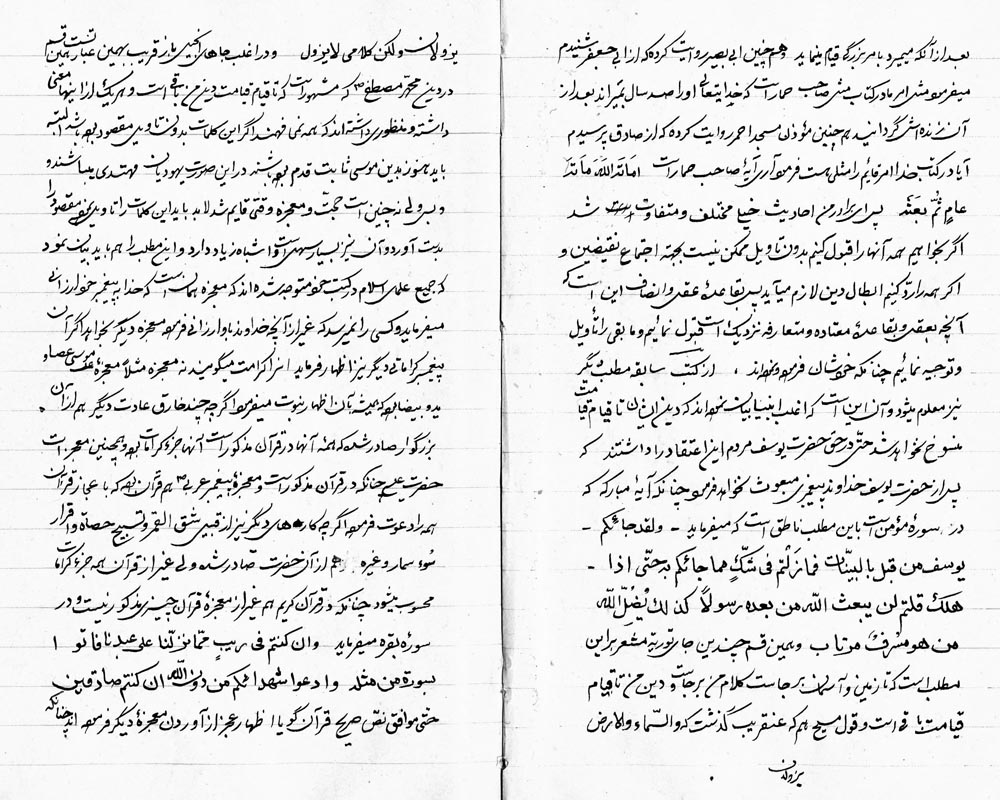 بعد از آنکه میمیرد بامر بزرگی قیام مینماید وهم چنین ابی بصیر روایت کرده که از ابی جعفر شنیدم
میفرمود مثل امر ما در کتاب مثل صاحب حمار است که خدایتعالی او را صد سال بمیراند بعد از
آن زنده اش گردانید هم چنین مؤذن مسجد احمر روایت کرده که از صادق پرسیدم
آیا در کتاب خدا امر قایم را مثلی هست فرمود آری آیهٔ صاحب حمار است اماته الله مائة
عام ثم بعثه پس ای برادر من احادیث خیلی مختلف و متفاوت شد
اگر بخواهیم همه آنها را قبول کنیم بدون تاویل ممکن نیست بجهة اجتماع نقیضین و
اگر همه را رد کنیم ابطال دین لازم میآید پس بقاعدهٔ عقل و انصاف این است که
آنچه بعقل و بقاعدهٔ معتاده و متعارفه نزدیک است قبول نمائیم و ما بقی را تأویل
و توجیه نمائیم چنانکه خودشان فرموده‌اند ، از کتب سابقه مطلب دیگر
نیز معلوم میشود و آن این است که اغلب انبیا بیان نموده‌اند که دین ایشان تا قیام قیامت
منسوخ نخواهد شد حتی در حق حضرت یوسف مردم این اعتقاد را داشتند که
پس از حضرت یوسف خداوند پیغمبری مبعوث نخواهد فرمود چنانکه آیهٔ مبارکه که
در سورهٔ مؤمن است باین مطلب ناطق است که میفرماید - ولقد جائکم -
یوسف من قبل بالبینات فما زلتم فی شک مما جائکم به حتی اذا -
هلک قلتم لن یبعث الله من بعده رسولاً کذلک یضل الله
من هو مسرف مرتاب وبهمین قسم چندین جای توریة مشعر براین
مطلب است که تا زمین و آسمان برجاست کلام من برجاست و دین من تا قیام
قیامت باقی است و قول مسیح هم که عنقریب گذشت که والسماء والارض
یزولان
یزولان ولکن کلامی لایزول ودر اغلب جاهای انجیل باز قریب بهمین عبارت بهمین قسم است
در دین محمد مصطفی ص که مشهور است که تا قیام قیامت دین من باقی است و هر یک از اینها معنی
داشته و منظوری داشته‌اند که همه نمی فهمند اگر این کلمات بدون تاویل مقصود بوده باشد البته
باید هنوز بدین موسی ثابت قدم بوده باشند در این صورت یهودیان مهتدی میباشند و
وبس ولی نه چنین است حجت و معجزه وقتی قایم شد لابد باید این کلمات را تاویل نموده مقصود را
بدست آورد و آن نیز بسیار سهل است و اشباه زیاد دارد و این مطلب را هم باید بیان نمود
که جمیع علمای اسلام در کتب خود متوجه شده‌اند که معجزه همان است که خدا به پیغمبر خود ارزانی
میفرماید و کسی را نمیرسد که غیر از آنچه خداوند باو ارزانی فرموده معجزهٔ دیگر بخواهد اگر آن
پیغمبر کراماتی دیگر نیز اظهار فرماید آنرا کرامت میگویند نه معجزه مثلاً معجزهٔ حضرت موسی عصا و
ید و بیضا بود که همیشه بآن اظهار نبوت میفرمود اگرچه چند خارق عادت دیگر هم از آن
بزرگوار صادر شد که همهٔ آنها در قرآن مذکور است آنها جزو کرامات بود و همچنین معجزات
حضرت عیسی چنانکه در قرآن مذکور است و معجزهٔ پیغمبر عربی ص هم قرآن بود که با عجاز قرآن
همه را دعوت فرمود اگرچه کارهای دیگر نیز از قبیل شق القمر و تسبیح حصاة و اقرار
سوسمار و غیره هم از آن حضرت صادر شده ولی غیر از قرآن همه جزو کرامات
محسوب میشود چنانکه در قرآن کریم هم غیر از معجزهٔ قرآن چیزی مذکور نیست و در
سورهٔ بقره میفرماید وان کنتم فی ریب مما نزلنا علی عبدنا فاتوا
بسورة من مثله وادعوا شهدائکم من دون الله ان کنتم صادقین
حتی موافق نص صریح قرآن گویا اظهار عجز از آوردن معجزهٔ دیگر فرموده‌اند چنانکه